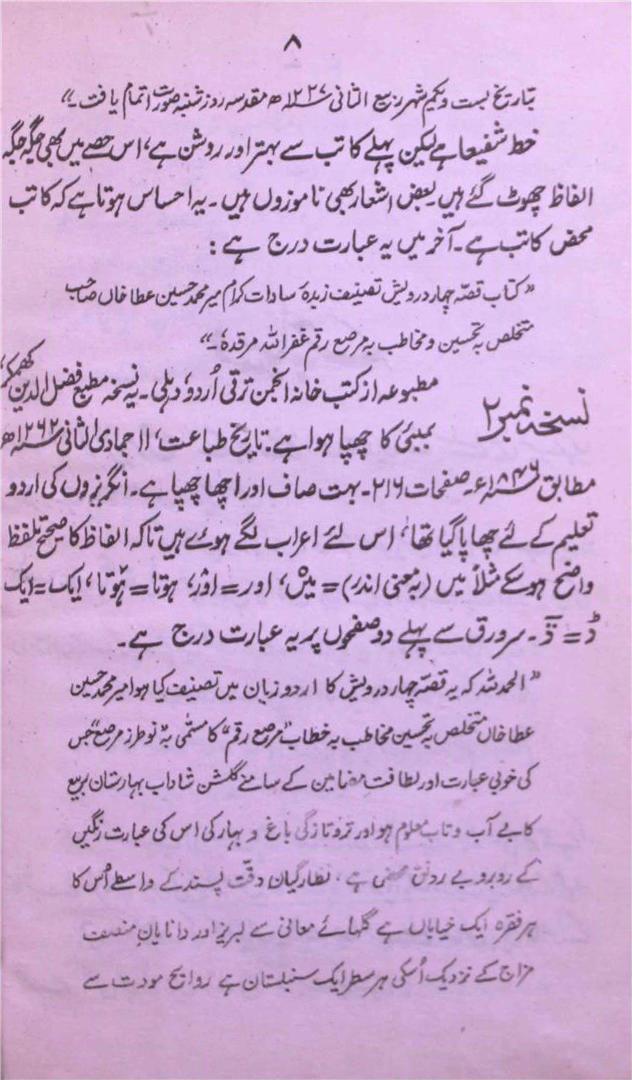 ۸
بتاریخ بست ویکم شہر ربیع الثانی ۱۲۲۷ھ مقدسہ روز شنبہ صورت اتمام یافت۔"
خط شفیعا ہے لیکن پہلے کاتب سے بہتر اور روشن ہے، اس حصے میں بھی جگہ جگہ
الفاظ چھوٹ گئے ہیں۔ بعض اشعار بھی ناموزوں ہیں۔ یہ احساس ہوتا ہے کہ کاتب
محض کاتب ہے۔ آخر میں یہ عبارت درج ہے:
"کتاب قصّہ چہار درویش تصنیف زبدۂ سادات کرام میر محمد حسین عطا خاں صاحب
متخلص بہ تحسین و مخاطب بہ مرصع رقم غفر اللہ مرقدہٗ۔"
نسخہ نمبر ۲ مطبوعہ از کتب خانہ انجمن ترقی اُردو، دہلی۔ یہ نسخہ مطبع فضل الدین کھمکر،
بمبئی کا چھپا ہوا ہے۔ تاریخ طباعت، ۱۱ جمادی الثانی ۱۲۶۲ھ
مطابق ۱۸۴۶ء۔ صفحات ۲۱۶۔ بہت صاف اور اچھا چھپا ہے۔ انگریزوں کی اردو
تعلیم کے لئے چھاپا گیا تھا، اس لئے اعراب لگے ہوے ہیں تاکہ الفاظ کا صحیح تلفظ
واضح ہوسکے مثلاً میں (بہ معنی اندر) = میں، اور = اوٚر، ہوتا = ہوٚتا، ایک = ایک
ڈ = ڐ۔ سرورق سے پہلے دو صفحوں پر یہ عبارت درج ہے۔
"الحمدللہ کہ یہ قصّہ چہار درویش کا اردو زبان میں تصنیف کیا ہوا میر محمد حسین
عطا خاں متخلص بہ تحسین مخاطب بہ خطاب "مرصع رقم" کا مسمٰی بہ "نو طرز مرصع" جس
کی خوبی عبارت اور لطافت مضامین کے سامنے گلشن شاداب بہارستان ربیع
کا بے آب و تاب معلوم ہو اور تروتازگی باغ و بہار کی اس کی عبارت رنگیں
کے روبرو بے رونق محض ہے، نظارگیان دقّت پسند کے واسطے اُس کا
ہر فقرہ ایک خیاباں ہے گلہائے معانی سے لبریز اور دانایان منصف
مزاج کے نزدیک اُسکی ہر سطر ایک سنبلستان ہے روایح مودت سے